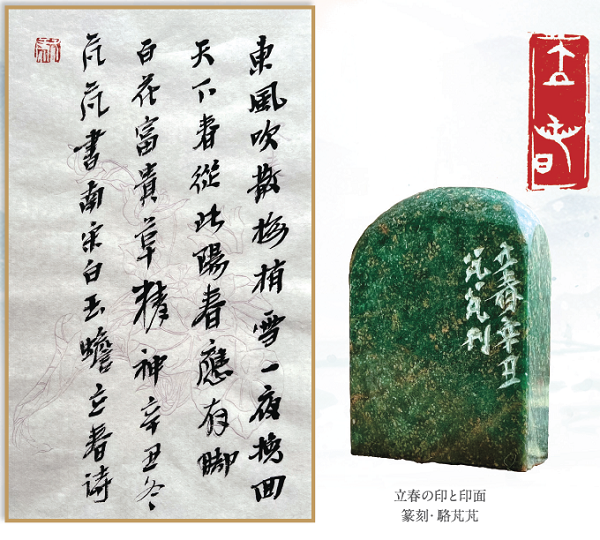 東風吹散梅梢雪一夜挽回
天下春從此陽春應有脚
百花富貴草精神辛丑冬
芃芃書南宋白玉蟾立春诗
立春
立春辛丑
芃芃刊
立春の印と印面
篆刻·駱芃芃